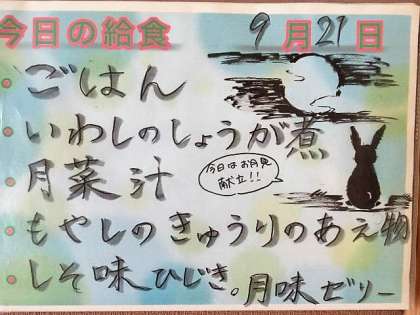 今日の給食 9月21日
・ごはん
・いわしのしょうが煮
・月菜汁
今日はお月見
献立!!
・もやしのきゅうりのあえ物
・しそ味ひじき。月味ゼリー